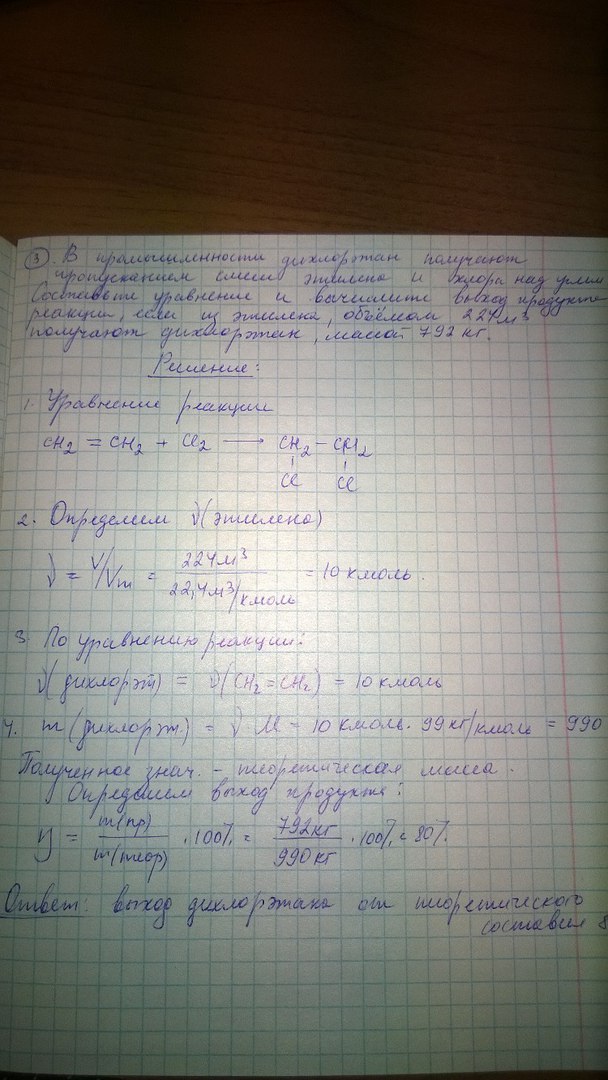 ③. В промышленности дихлорэтан получают
пропусканием смеси этилена и хлора над углём
Составьте уравнение и вычислите выход продукта
реакции, если из этилена, объёмом 224 м³
получают дихлорэтан, массой 792 кг.
Решение:
1. Уравнение реакции
CH₂ = CH₂ + Cl₂ ⟶ CH₂ – CH₂
Cl Cl
2. Определяем ν(этилена)
ν = V/Vm = 224 м³ / 22,4 м³/кмоль = 10 кмоль.
3. По уравнению реакции:
ν(дихлорэт) = ν(CH₂=CH₂) = 10 кмоль
4. m(дихлорэт.) = ν M = 10 кмоль · 99 кг/кмоль = 990
Полученное знач. – теоретическая масса.
Определяем выход продукта:
η = m(пр) / m(теор) · 100% = 792 кг / 990 кг · 100% = 80%
Ответ: выход дихлорэтана от теоретического
составил 8